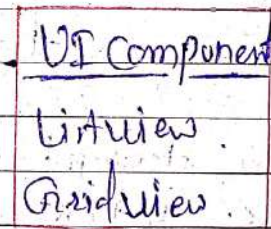 UI Component
Listview.
Gridview.